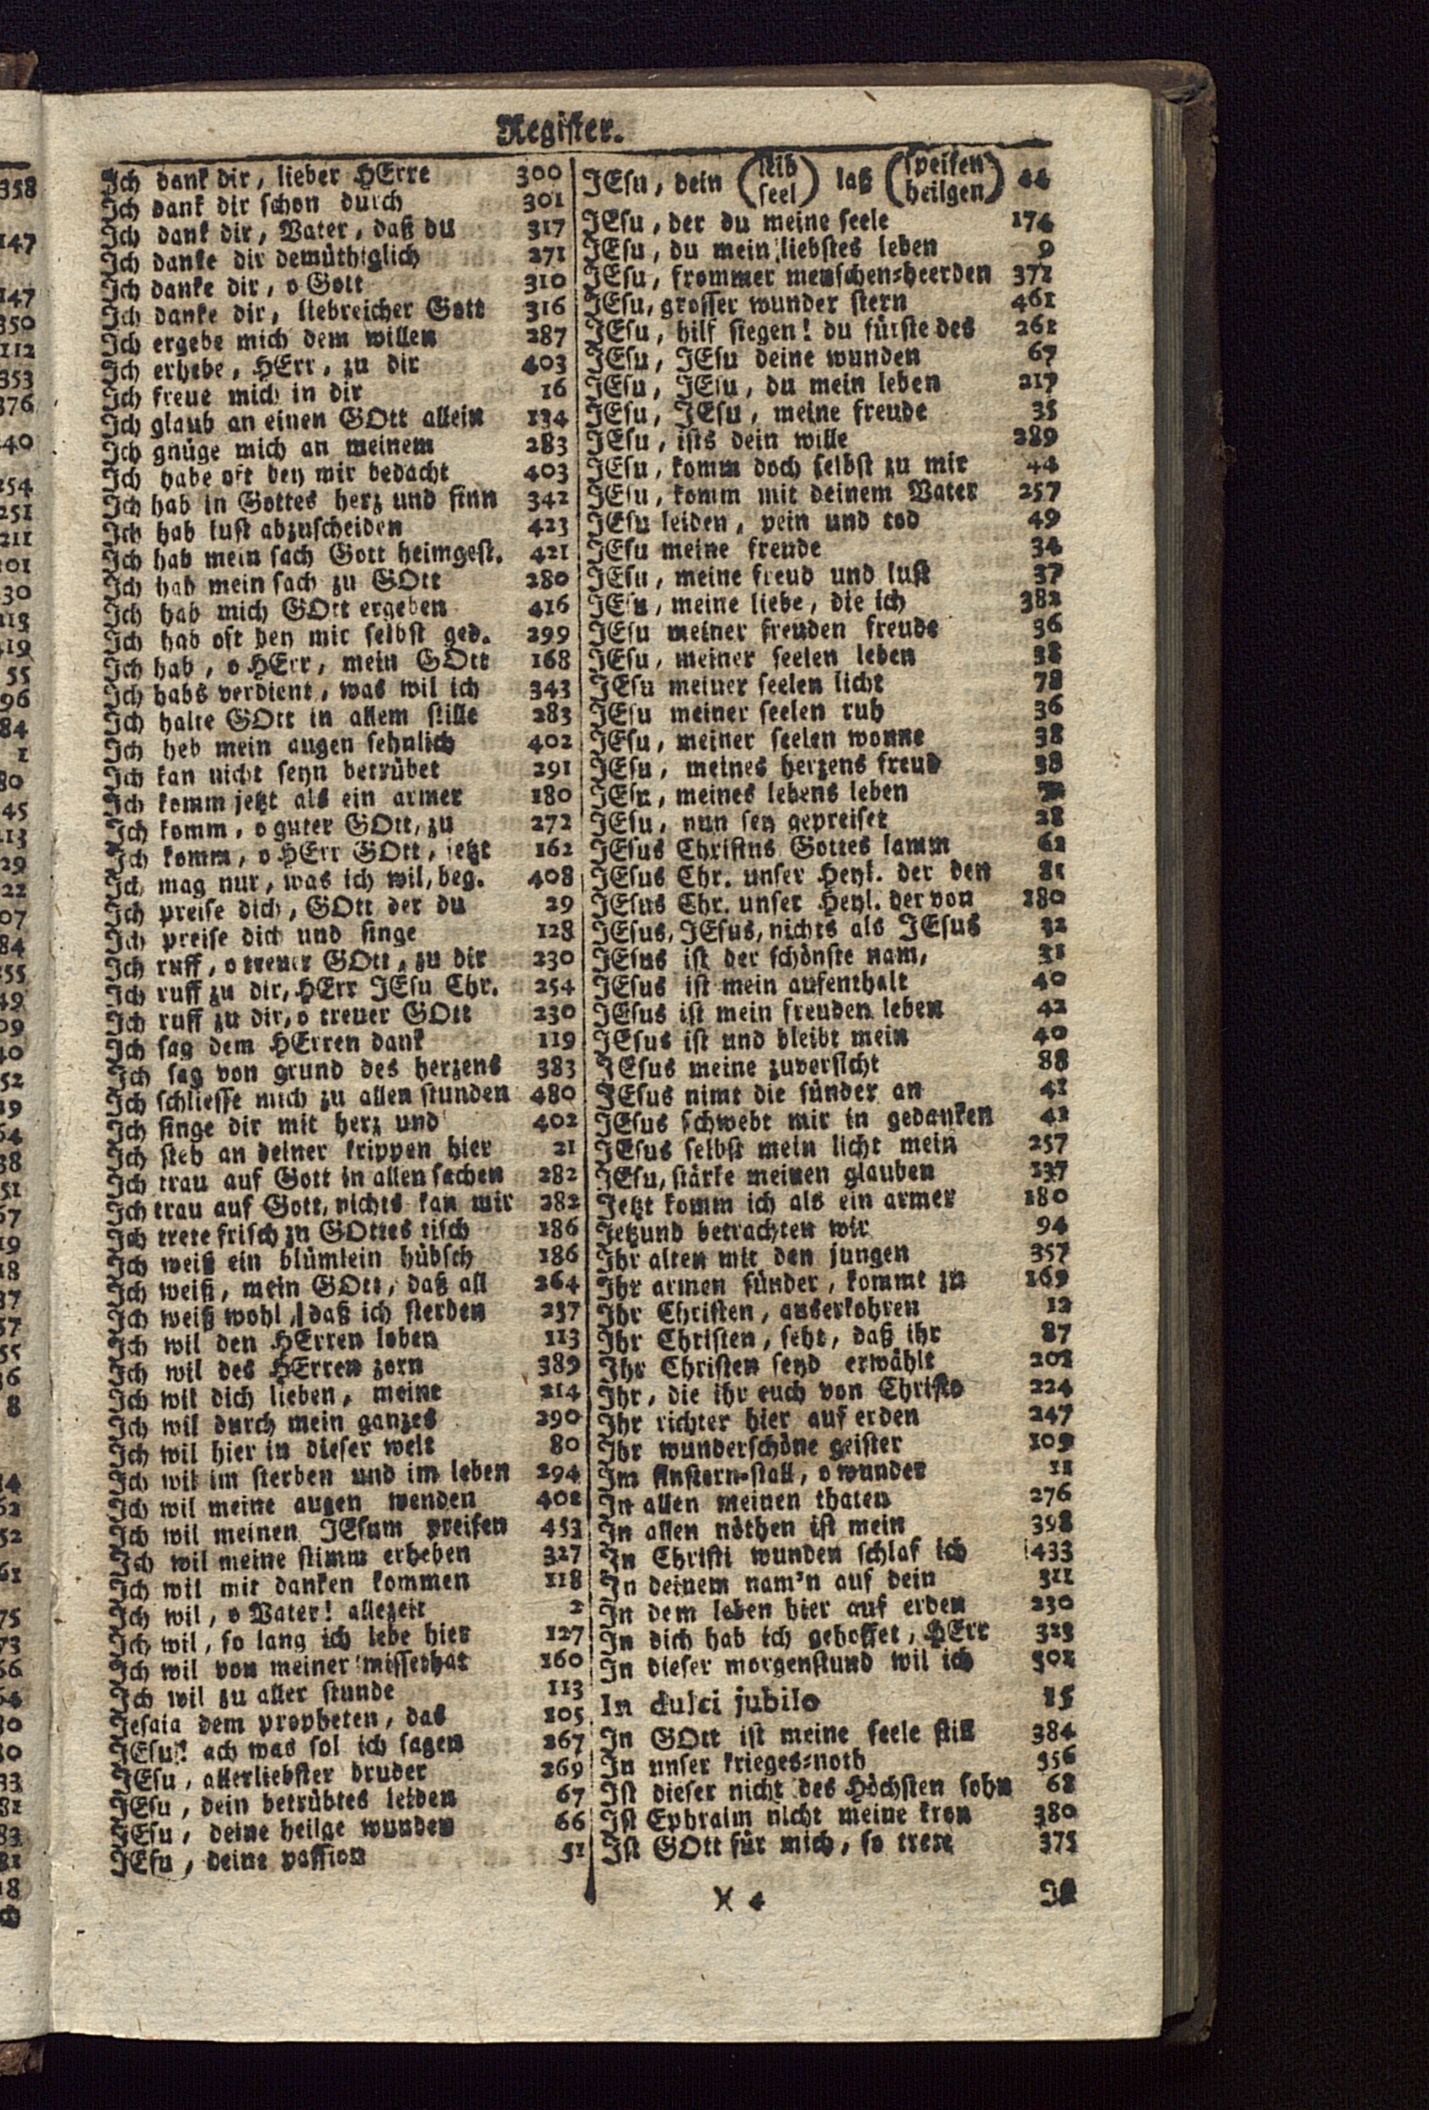 Register.
Ich dank dir, lieber HErre 300
Ich dank dir schon durch 301
Ich dank dir, Vater, daß du 317
Ich danke dir demüthiglich 271
Ich danke dir, o Gott 310
Ich danke dir, liebreicher Gott 316
Ich ergebe mich dem willen 287
Ich erhebe, HErr, zu dir 403
Ich freue mich in dir 16
Ich glaub an einen GOtt allein 134
Ich gnüge mich an meinem 283
Ich habe oft bey mir bedacht 403
Ich hab in Gottes herz und sinn 342
Ich hab lust abzuscheiden 423
Ich hab mein sach Gott heimgest. 421
Ich hab mein sach zu GOtt 280
Ich hab mich GOtt ergeben 416
Ich hab oft bey mir selbst ged. 299
Ich hab, o HErr, mein GOtt 168
Ich habs verdient, was wil ich 343
Ich halte GOtt in allem stille 283
Ich heb mein augen sehnlich 402
Ich kan nicht seyn betrübet 291
Ich komm jetzt als ein armer 180
Ich komm, o guter GOtt, zu 272
Ich komm, o HErr GOtt, jetzt 162
Ich mag nur, was ich wil, beg. 408
Ich preise dich, GOtt der du 29
Ich preise dich und singe 128
Ich ruff, o treuer GOtt, zu dir 230
Ich ruff zu dir, HErr JEsu Chr. 254
Ich ruff zu dir, o treuer GOtt 230
Ich sag dem HErren dank 119
Ich sag von grund des herzens 383
Ich schliesse mich zu allen stunden 480
Ich singe dir mit herz und 402
Ich steh an deiner krippen hier 21
Ich trau auf Gott in allen sachen 282
Ich trau auf Gott, nichts kan mir 282
Ich trete frisch zu GOttes tisch 186
Ich weiß ein blümlein hübsch 186
Ich weiß, mein GOtt, daß all 264
Ich weiß wohl, daß ich sterben 237
Ich wil den HErren loben 113
Ich wil des HErren zorn 389
Ich wil dich lieben, meine 214
Ich wil durch mein ganzes 290
Ich wil hier in dieser welt 80
Ich wil im sterben und im leben 294
Ich wil meine augen wenden 402
Ich wil meinen JEsum preisen 453
Ich wil meine stimm erheben 327
Ich wil mit danken kommen 118
Ich wil, o Vater! allezeit 2
Ich wil, so lang ich lebe hier 127
Ich wil von meiner missethat 160
Ich wil zu aller stunde 113
Jesaia dem propheten, das 105
JEsu! ach was sol ich sagen 267
JEsu, allerliebster bruder 269
JEsu, dein betrübtes leiden 67
JEsu, deine heilge wunden 66
JEsu, deine passion 51
JEsu, dein (leib seel) laß (speisen heilgen) 44
JEsu, der du meine seele 174
JEsu, du mein liebstes leben 9
JEsu, frommer menschen-heerden 372
JEsu, grosser wunder stern 461
JEsu, hilf siegen! du fürste des 262
JEsu, JEsu deine wunden 67
JEsu, JEsu, du mein leben 217
JEsu, JEsu, meine freude 35
JEsu, ists dein wille 289
JEsu, komm doch selbst zu mir 44
JEsu, komm mit deinem Vater 257
JEsu leiden, pein und tod 49
JEsu meine freude 34
JEsu, meine freud und lust 37
JEsu, meine liebe, die ich 382
JEsu meiner freuden freude 36
JEsu, meiner seelen leben 38
JEsu meiner seelen licht 78
JEsu meiner seelen ruh 36
JEsu, meiner seelen wonne 38
JEsu, meines herzens freud 38
JEsu, meines lebens leben
JEsu, nun sey gepreiset 28
JEsus Christus Gottes lamm 62
JEsus Chr. unser Heyl. der den 81
JEsus Chr. unser Heyl. der von 180
JEsus, JEsus, nichts als JEsus 32
JEsus ist der schönste nam, 31
JEsus ist mein aufenthalt 40
JEsus ist mein freuden leben 42
JEsus ist und bleibt mein 40
JEsus meine zuversicht 88
JEsus nimt die sünder an 41
JEsus schwebt mir in gedanken 42
JEsus selbst mein licht mein 257
JEsu, stärke meinen glauben 137
Jetzt komm ich als ein armer 180
Jetzund betrachten wir 94
Ihr alten mit den jungen 357
Ihr armen sünder, kommt zu 169
Ihr Christen, auserkohren 12
Ihr Christen, seht, daß ihr 87
Ihr Christen seyd erwählt 202
Ihr, die ihr euch von Christo 224
Ihr richter hier auf erden 247
Ihr wunderschöne geister 109
Im finstern-stall, o wunder 11
In allen meinen thaten 276
In allen nöthen ist mein 398
In Christi wunden schlaf ich 433
In deinem nam'n auf dein 311
In dem leben hier auf erden 230
In dich hab ich gehoffet, HErr 323
In dieser morgenstund wil ich 302
In dulci jubilo 15
In GOtt ist meine seele still 384
In unser krieges-noth 356
Ist dieser nicht des Höchsten sohn 62
Ist Ephraim nicht meine kron 380
Ist GOtt für mich, so trete 375
X 4 Ist